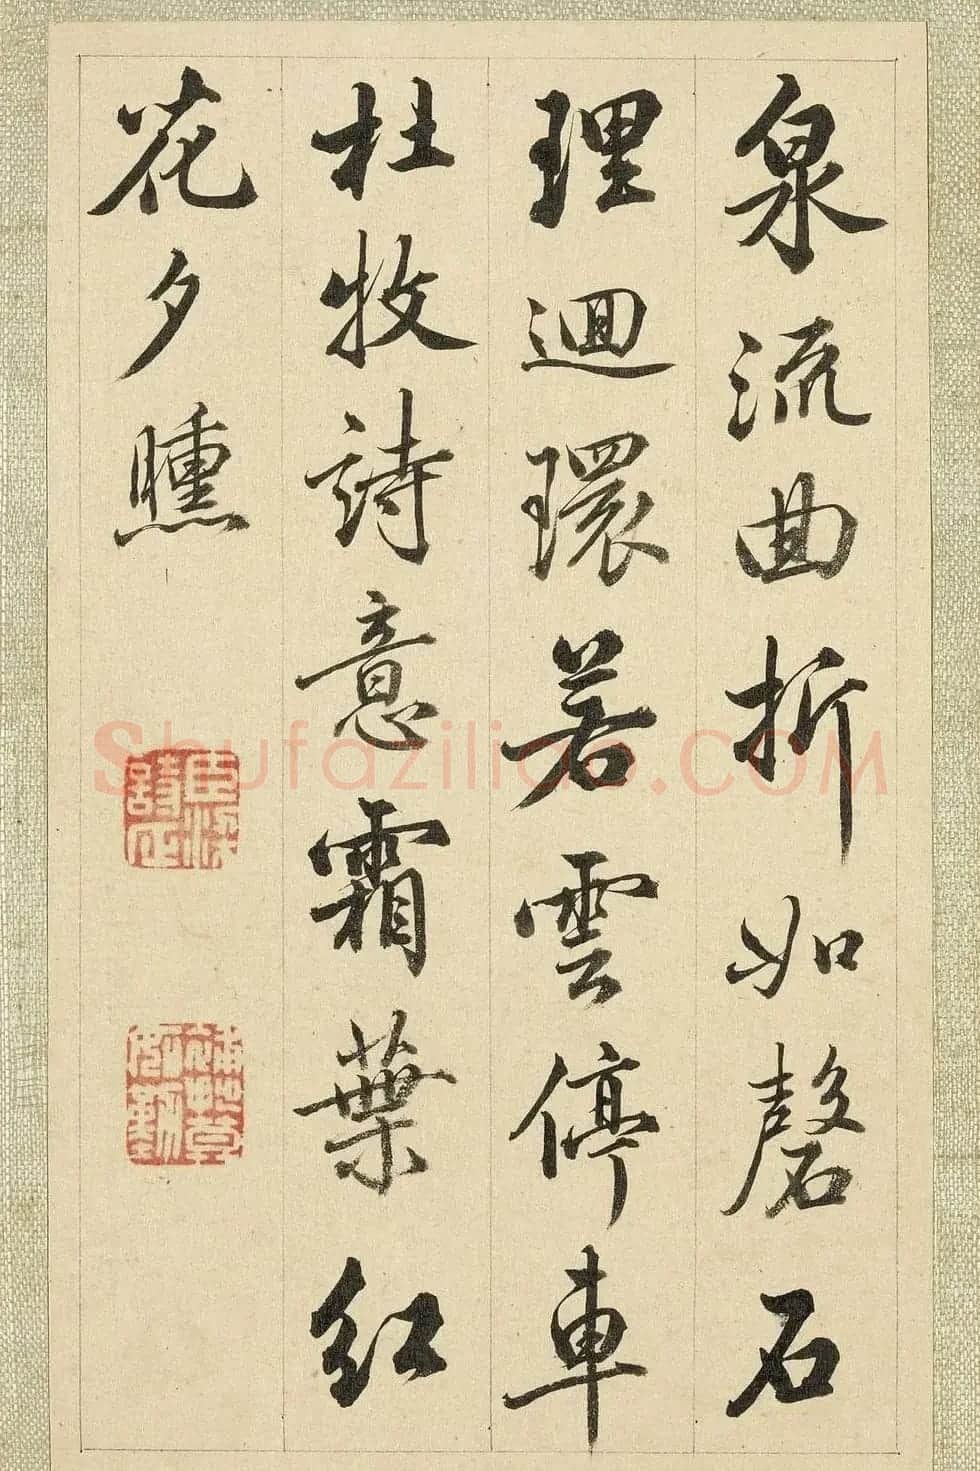 泉流曲折如磬石
理迴環若雲停車
杜牧詩意霜葉紅
花夕曛
Shufaziliao.COM